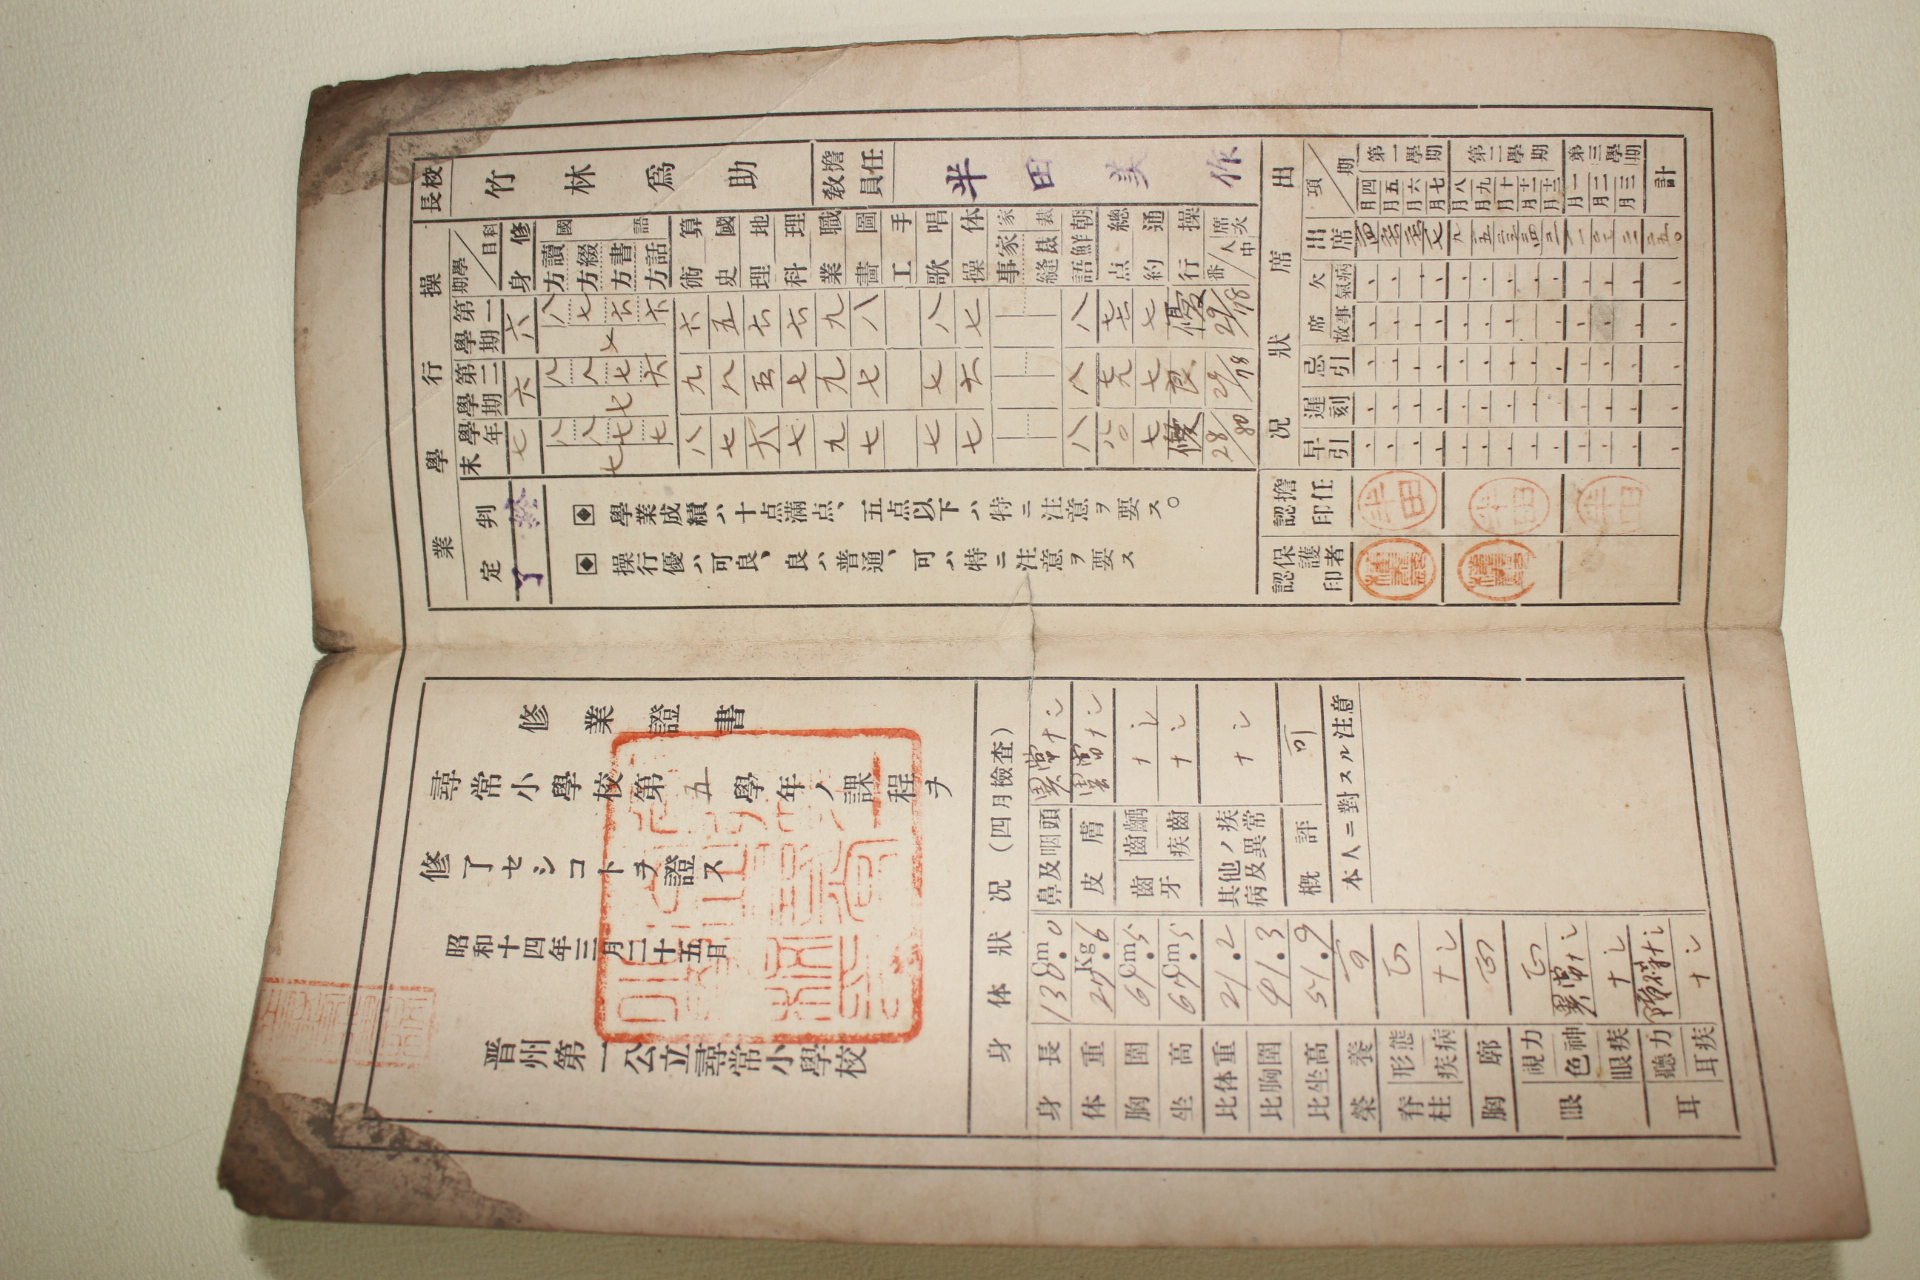 校長
竹林爲助
擔任教員
半田美作
操行學業
學期／科目
第一學期
第二學期
學年末
修身 六 六 七
國語
讀方 八 八 八
綴方 七 八 八
書方 六 七 七
話方 六 六 七
七 七 七
算術 六 九 八
國史 五 八 七
地理 六 五 六
理科 六 七 七
職業 九 九 九
圖畫 八 七 七
手工
唱歌 八 七 七
体操 七 六 七
家事
家裁
裁縫
朝鮮語 八 八 八
總点 七六 七九 八〇
通約 七 七 七
操行 優 良 優
席次 番／人中 29/78 29/78 28/80
判定
終了
◆ 學業成績ハ十点滿点、五点以下ハ特ニ注意ヲ要ス。
◆ 操行優ハ可良、良ハ普通、可ハ特ニ注意ヲ要ス
出席狀况
項／期
出席
欠席
病氣
事故
忌引
遲刻
早引
擔任認印
保護者認印
第一學期
四月 二四
五月 二六
六月 二六
七月 一七
第二學期
八月 九
九月 二五
十月 二三
十一月 二四
十二月 二一
第三學期
一月
二月
三月 二二
計 二五〇
半田
半田
半田
修業證書
尋常小學校第五學年ノ課程ヲ
修了セシコトヲ證ス
昭和十四年三月二十五日
晋州第一公立尋常小學校
身体狀况（四月檢査）
身長 130.0 Cm
体重 27.6 Kg
胸圍 67.5 Cm
坐高 67.5 Cm
比体重 21.2
比胸圍 41.3
比坐高 51.9
榮養 可
脊柱
形態 正
疾病 ナシ
胸廓 正
眼
視力 正
色神 異常ナシ
眼疾 ナシ
耳
聽力 障碍ナシ
耳疾 ナシ
鼻及咽頭 異常ナシ
皮膚 異常ナシ
齒牙
齲齒 ナシ
齒疾 ナシ
其他ノ疾病及異常 ナシ
槪評 可
本人ニ對スル注意